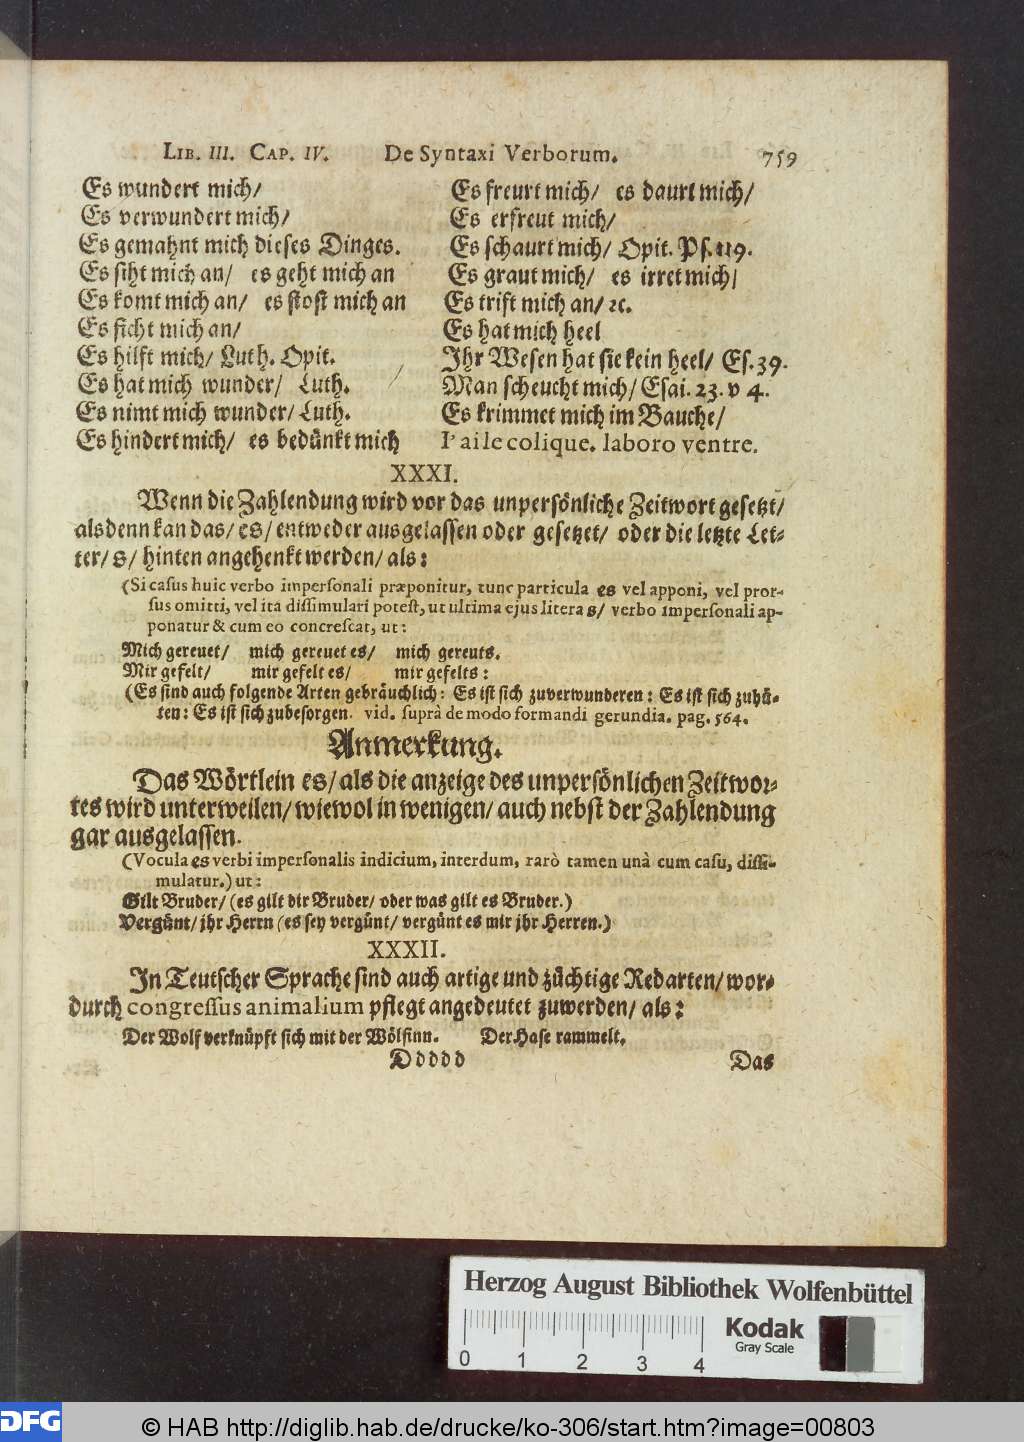 LIB. III. CAP. IV. De Syntaxi Verborum. 759
Es wundert mich/
Es verwundert mich/
Es gemahnt mich dieses Dinges.
Es siht mich an/ es geht mich an
Es komt mich an/ es stost mich an
Es ficht mich an/
Es hilft mich/ Luth. Opit.
Es hat mich wunder/ Luth.
Es nimt mich wunder/ Luth.
Es hindert mich/ es bedünkt mich
Es freurt mich/ es daurt mich/
Es erfreut mich/
Es schaurt mich/ Opit. Ps. 119.
Es graut mich/ es irret mich/
Es trift mich an/ ꝛc.
Es hat mich heel
Ihr Wesen hat sie kein heel/ Es. 39.
Man scheucht mich/ Esai. 23. v 4.
Es krimmet mich im Bauche/
I'ai le colique. laboro ventre.
XXXI.
Wenn die Zahlendung wird vor das unpersönliche Zeitwort gesetzt/
alsdenn kan das/ es/ entweder ausgelassen oder gesetzet/ oder die letzte Let-
ter/ s/ hinten angehenkt werden/ als:
(Si casus huic verbo impersonali præponitur, tunc particula es vel apponi, vel pror-
sus omitti, vel ita dissimulari potest, ut ultima ejus litera s/ verbo impersonali ap-
ponatur & cum eo concrescat, ut:
Mich gereuet/ mich gereuet es/ mich gereuts.
Mir gefelt/ mir gefelt es/ mir gefelts:
(Es sind auch folgende Arten gebräuchlich: Es ist sich zuverwunderen: Es ist sich zuhü-
ten: Es ist sich zubesorgen. vid. suprà de modo formandi gerundia. pag. 564.
Anmerkung.
Das Wörtlein es/ als die anzeige des unpersönlichen Zeitwor-
tes wird unterweilen/ wiewol in wenigen/ auch nebst der Zahlendung
gar ausgelassen.
(Vocula es verbi impersonalis indicium, interdum, rarò tamen unà cum casu, dissi-
mulatur.) ut:
Gilt Bruder/ (es gilt dir Bruder/ oder was gilt es Bruder.)
Vergünt/ jhr Herrn (es sey vergünt/ vergünt es mir jhr Herren.)
XXXII.
In Teutscher Sprache sind auch artige und züchtige Redarten/ wor-
durch congressus animalium pflegt angedeutet zuwerden/ als:
Der Wolf verknüpft sich mit der Wölfinn. Der Hase rammelt.
Ddddd Das
Herzog August Bibliothek Wolfenbüttel
Kodak
Gray Scale
0 1 2 3 4
DFG
© HAB http://diglib.hab.de/drucke/ko-306/start.htm?image=00803